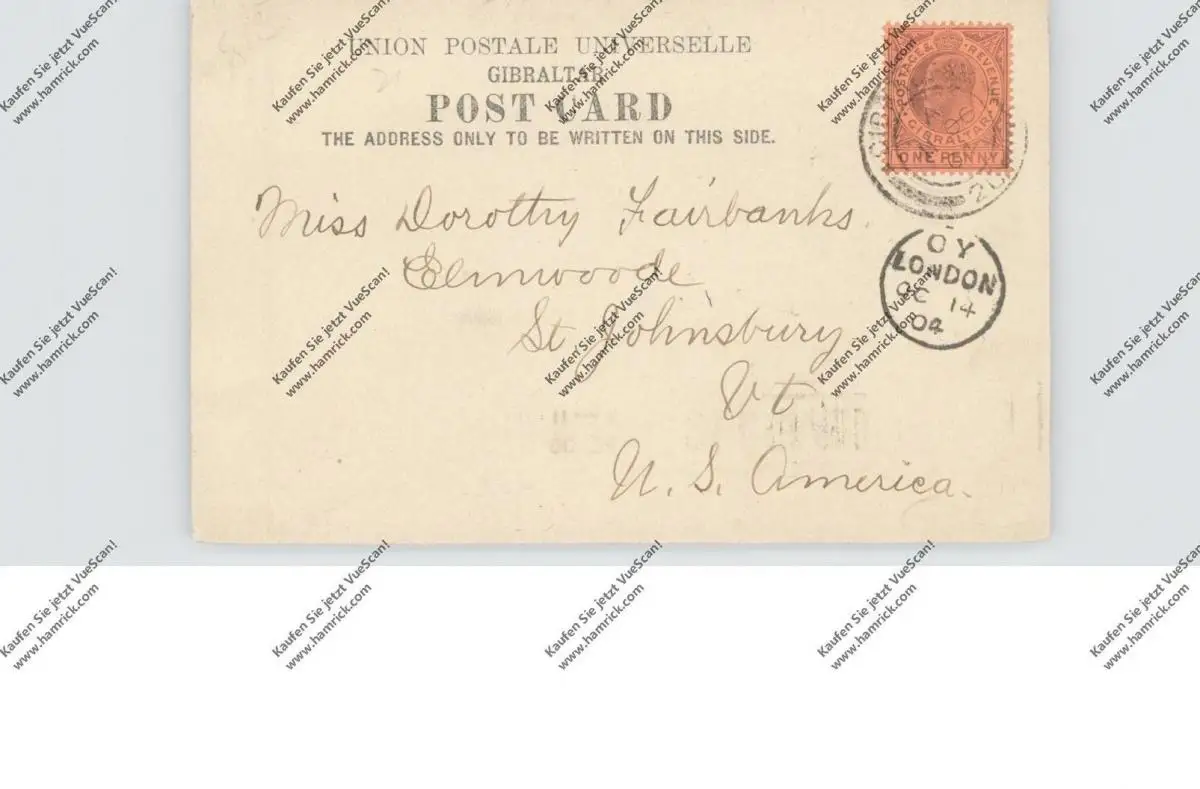 UNION POSTALE UNIVERSELLE
GIBRALTAR
POST CARD
THE ADDRESS ONLY TO BE WRITTEN ON THIS SIDE.
POSTAGE & REVENUE
GIBRALTAR
ONE PENNY
OY
LONDON
OC 14
04
Miss Dorothy Fairbanks.
Elmwoode
St Johnsbury
Vt.
U. S. America.
Kaufen Sie jetzt VueScan!
www.hamrick.com
Kaufen Sie jetzt VueScan!
www.hamrick.com
Kaufen Sie jetzt VueScan!
www.hamrick.com
Kaufen Sie jetzt VueScan!
www.hamrick.com
Kaufen Sie jetzt VueScan!
www.hamrick.com
Kaufen Sie jetzt VueScan!
www.hamrick.com
Kaufen Sie jetzt VueScan!
www.hamrick.com
Kaufen Sie jetzt VueScan!
www.hamrick.com
Kaufen Sie jetzt VueScan!
www.hamrick.com
Kaufen Sie jetzt VueScan!
www.hamrick.com
Kaufen Sie jetzt VueScan!
www.hamrick.com
Kaufen Sie jetzt VueScan!
www.hamrick.com
Kaufen Sie jetzt VueScan!
www.hamrick.com
Kaufen Sie jetzt VueScan!
www.hamrick.com
Kaufen Sie jetzt VueScan!
www.hamrick.com